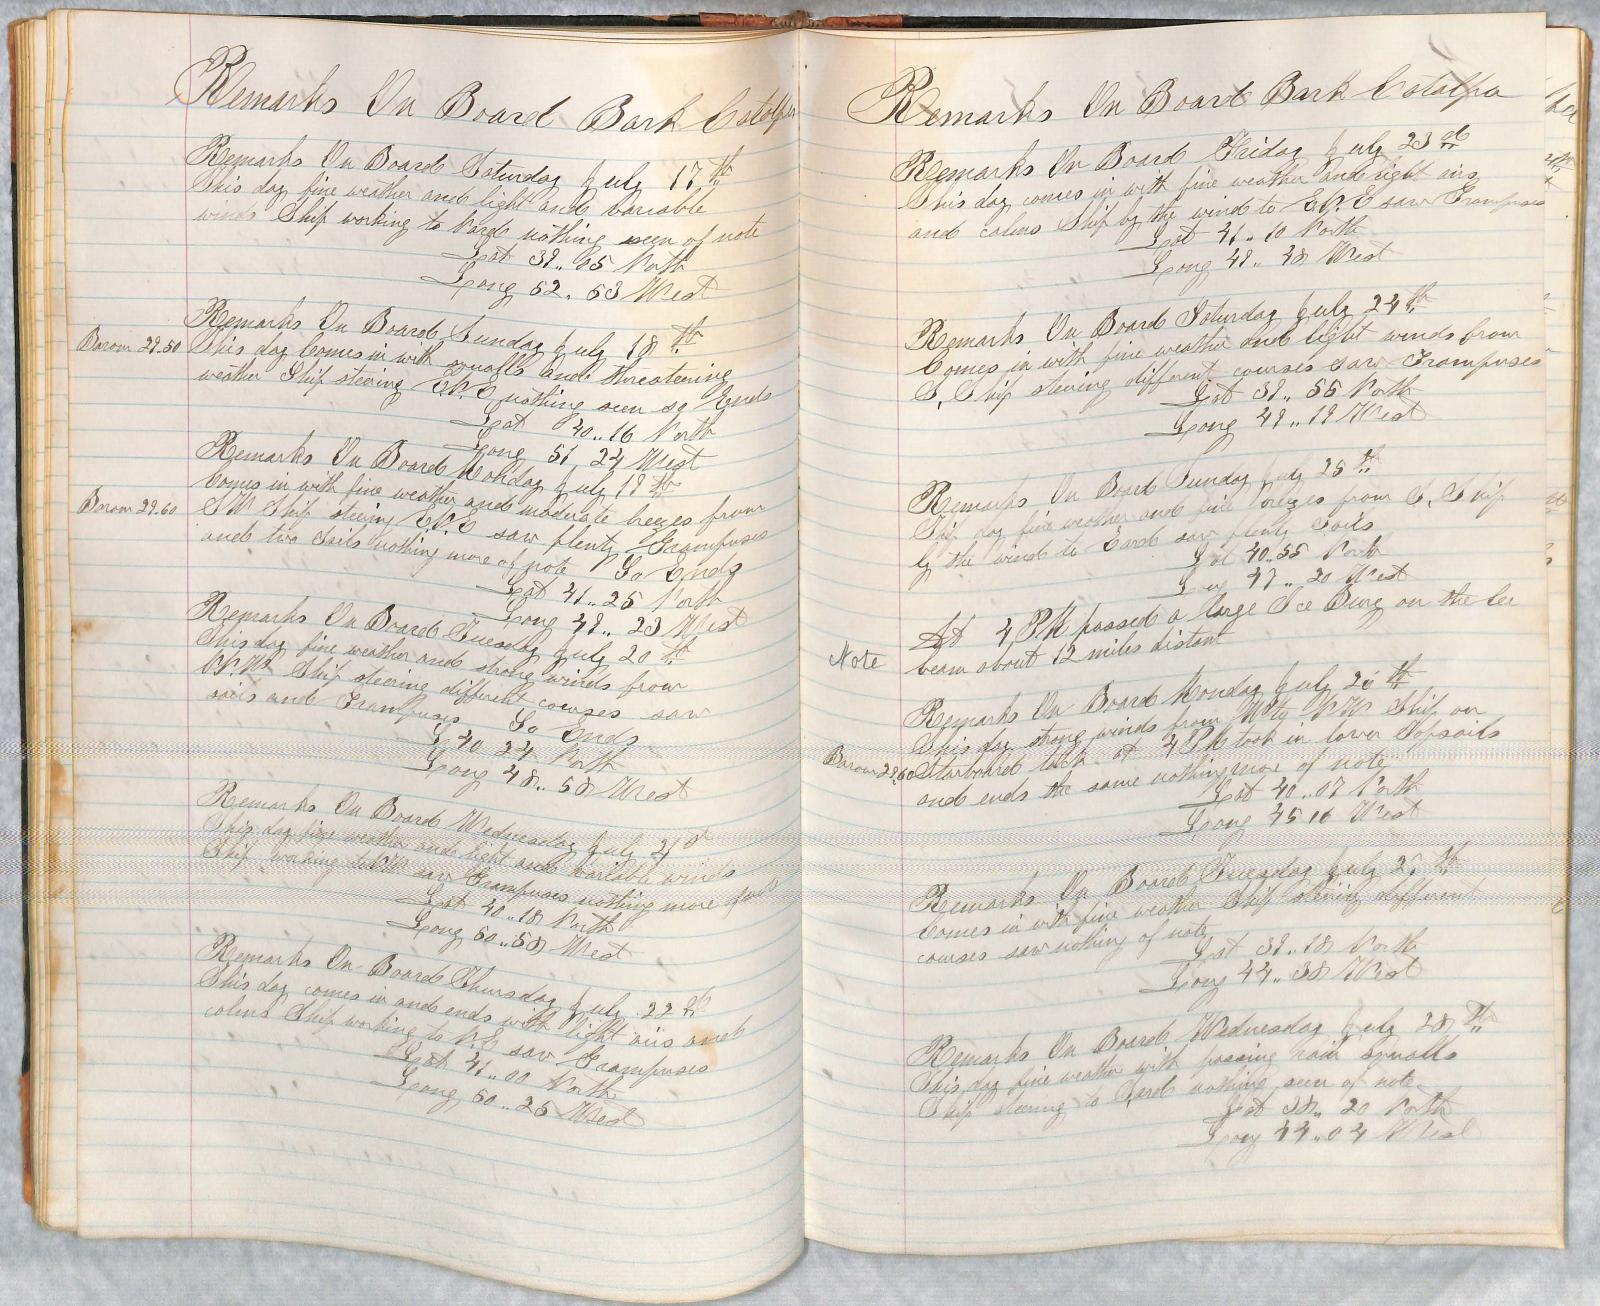 Remarks On Board Bark Catalpa
Remarks On Board Saturday July 17th
This day fine weather and light and variable
winds Ship working to Nard nothing seen of note
Lat 39.. 55 North
Long 52.. 53 West
Remarks On Board Sunday July 18th
Barom 29.50 This day Comes in with squalls and threatening
weather Ship steering E.N.E nothing seen so Ends
Lat 40.. 16 North
Long 51, 24 West
Remarks On Board Monday July 19th
Comes in with fine weather and moderate breezes from
Barom 29.60 SW Ship steering E.N.E saw plenty Grampuses
and two Sails nothing more of note So Ends
Lat 41.. 25 North
Long 49.. 23 West
Remarks On Board Tuesday July 20th
This day fine weather and strong winds from
N.NW Ship steering different courses saw
sails and Grampuses So Ends
L 40 24 North
Long 48.. 58 West
Remarks On Board Wednesday July 21st
This day fine weather and light and variable winds
Ship working to NW saw Grampuses nothing more of note
Lat 40.. 18 North
Long 50.. 58 West
Remarks On Board Thursday July 22nd
This day comes in and ends with light airs and
calms Ship working to N.E saw Grampuses
Lat 41.. 00 North
Long 50.. 25 West
Remarks On Board Bark Catalpa
Remarks On Board Friday July 23rd
This day comes in with fine weather and light airs
and calms Ship by the wind to E.N.E saw Grampuses
Lat 41.. 10 North
Long 49.. 48 West
Remarks On Board Saturday July 24th
Comes in with fine weather and light winds from
S, Ship steering different courses saw Grampuses
Lat 39.. 55 North
Long 49.. 19 West
Remarks On Board Sunday July 25th
This day fine weather and fine brezes from S, Ship
by the wind to Eard saw plenty Sails
Lat 40.55 North
Long 47.. 20 West
At 4 PM passed a large Ice Burg on the lee
Note beam about 12 miles distant
Remarks On Board Monday July 26th
This day strong winds from W to NW Ship on
Barom 29.60 Starboard tack at 4 PM took in lower Topsails
and ends the same nothing more of note
Lat 40.. 07 North
Long 45 16 West
Remarks On Board Tuesday July 27th
Comes in with fine weather Ship steering different
courses saw nothing of note
Lat 39.. 18 North
Long 44.. 38 West
Remarks On Board Wednesday July 28th
This day fine weather with passing rain squalls
Ship steering to Sard nothing seen of note
Lat 38.. 20 North
Long 44.. 04 West